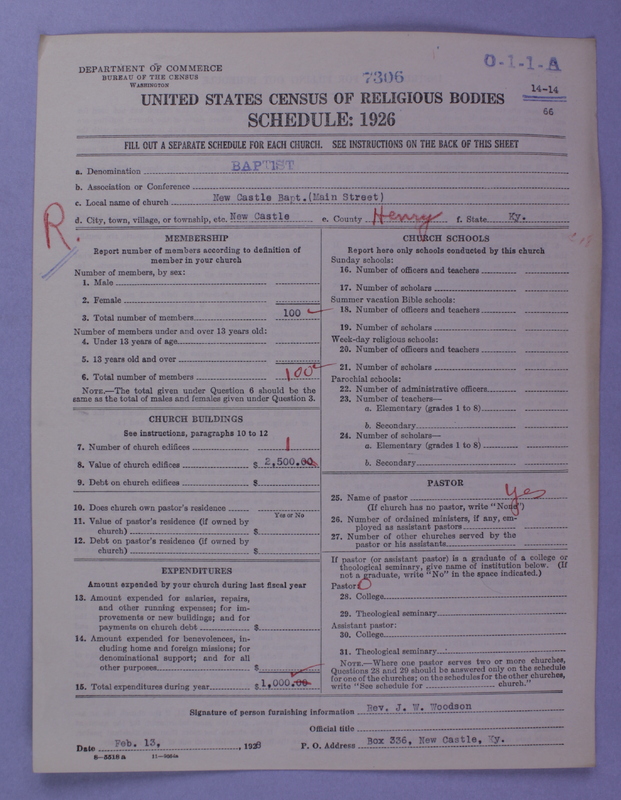 DEPARTMENT OF COMMERCE
BUREAU OF THE CENSUS
WASHINGTON
7306
O-1-1-A
14-14
66
UNITED STATES CENSUS OF RELIGIOUS BODIES
SCHEDULE: 1926
FILL OUT A SEPARATE SCHEDULE FOR EACH CHURCH. SEE INSTRUCTIONS ON THE BACK OF THIS SHEET
a. Denomination BAPTIST
b. Association or Conference
c. Local name of church New Castle Bapt.(Main Street)
d. City, town, village, or township, etc. New Castle e. County Henry f. State Ky.
R.
MEMBERSHIP
Report number of members according to definition of
member in your church
Number of members, by sex:
1. Male
2. Female
3. Total number of members 100
Number of members under and over 13 years old:
4. Under 13 years of age
5. 13 years old and over
6. Total number of members 100
NOTE.—The total given under Question 6 should be the
same as the total of males and females given under Question 3.
CHURCH BUILDINGS
See instructions, paragraphs 10 to 12
7. Number of church edifices 1
8. Value of church edifices $ 2,500.00
9. Debt on church edifices $
10. Does church own pastor's residence
Yes or No
11. Value of pastor's residence (if owned by
church) $
12. Debt on pastor's residence (if owned by
church) $
EXPENDITURES
Amount expended by your church during last fiscal year
13. Amount expended for salaries, repairs,
and other running expenses; for im-
provements or new buildings; and for
payments on church debt $
14. Amount expended for benevolences, in-
cluding home and foreign missions; for
denominational support; and for all
other purposes $
15. Total expenditures during year $ 1,000.00
CHURCH SCHOOLS
Report here only schools conducted by this church
Sunday schools:
16. Number of officers and teachers
17. Number of scholars
Summer vacation Bible schools:
18. Number of officers and teachers
19. Number of scholars
Week-day religious schools:
20. Number of officers and teachers
21. Number of scholars
Parochial schools:
22. Number of administrative officers
23. Number of teachers—
a. Elementary (grades 1 to 8)
b. Secondary
24. Number of scholars—
a. Elementary (grades 1 to 8)
b. Secondary
PASTOR
25. Name of pastor yes
(If church has no pastor, write "None")
26. Number of ordained ministers, if any, em-
ployed as assistant pastors
27. Number of other churches served by the
pastor or his assistants
If pastor (or assistant pastor) is a graduate of a college or
theological seminary, give name of institution below. (If
not a graduate, write "No" in the space indicated.)
Pastor: 0
28. College
29. Theological seminary
Assistant pastor:
30. College
31. Theological seminary
NOTE.—Where one pastor serves two or more churches,
Questions 28 and 29 should be answered only on the schedule
for one of the churches; on the schedules for the other churches,
write "See schedule for church."
Signature of person furnishing information Rev. J. W. Woodson
Official title
Date Feb. 13, , 1928 P. O. Address Box 336, New Castle, Ky.
8—5516 a